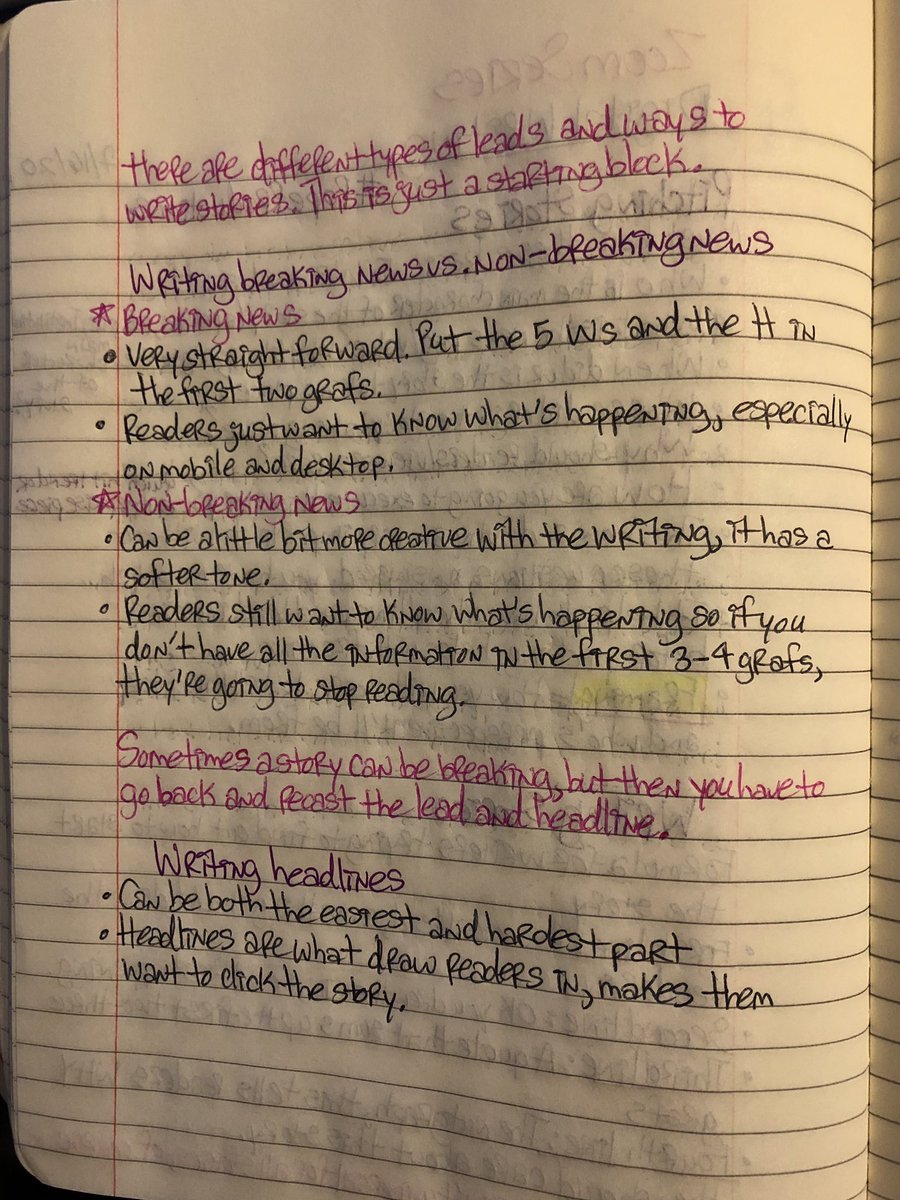 there are different types of leads and ways to
write stories. This is just a starting block.
Writing breaking news vs. non-breaking news
☆ Breaking news
• Very straight forward. Put the 5 Ws and the H in
the first two grafs.
• Readers just want to know what's happening, especially
on mobile and desktop.
☆ Non-breaking news
• Can be a little bit more creative with the writing, it has a
softer tone.
• Readers still want to know what's happening so if you
don't have all the information in the first 3-4 grafs,
they're going to stop reading.
Sometimes a story can be breaking, but then you have to
go back and recast the lead and headline.
Writing headlines
• Can be both the easiest and hardest part
• Headlines are what draw readers in, makes them
want to click the story.